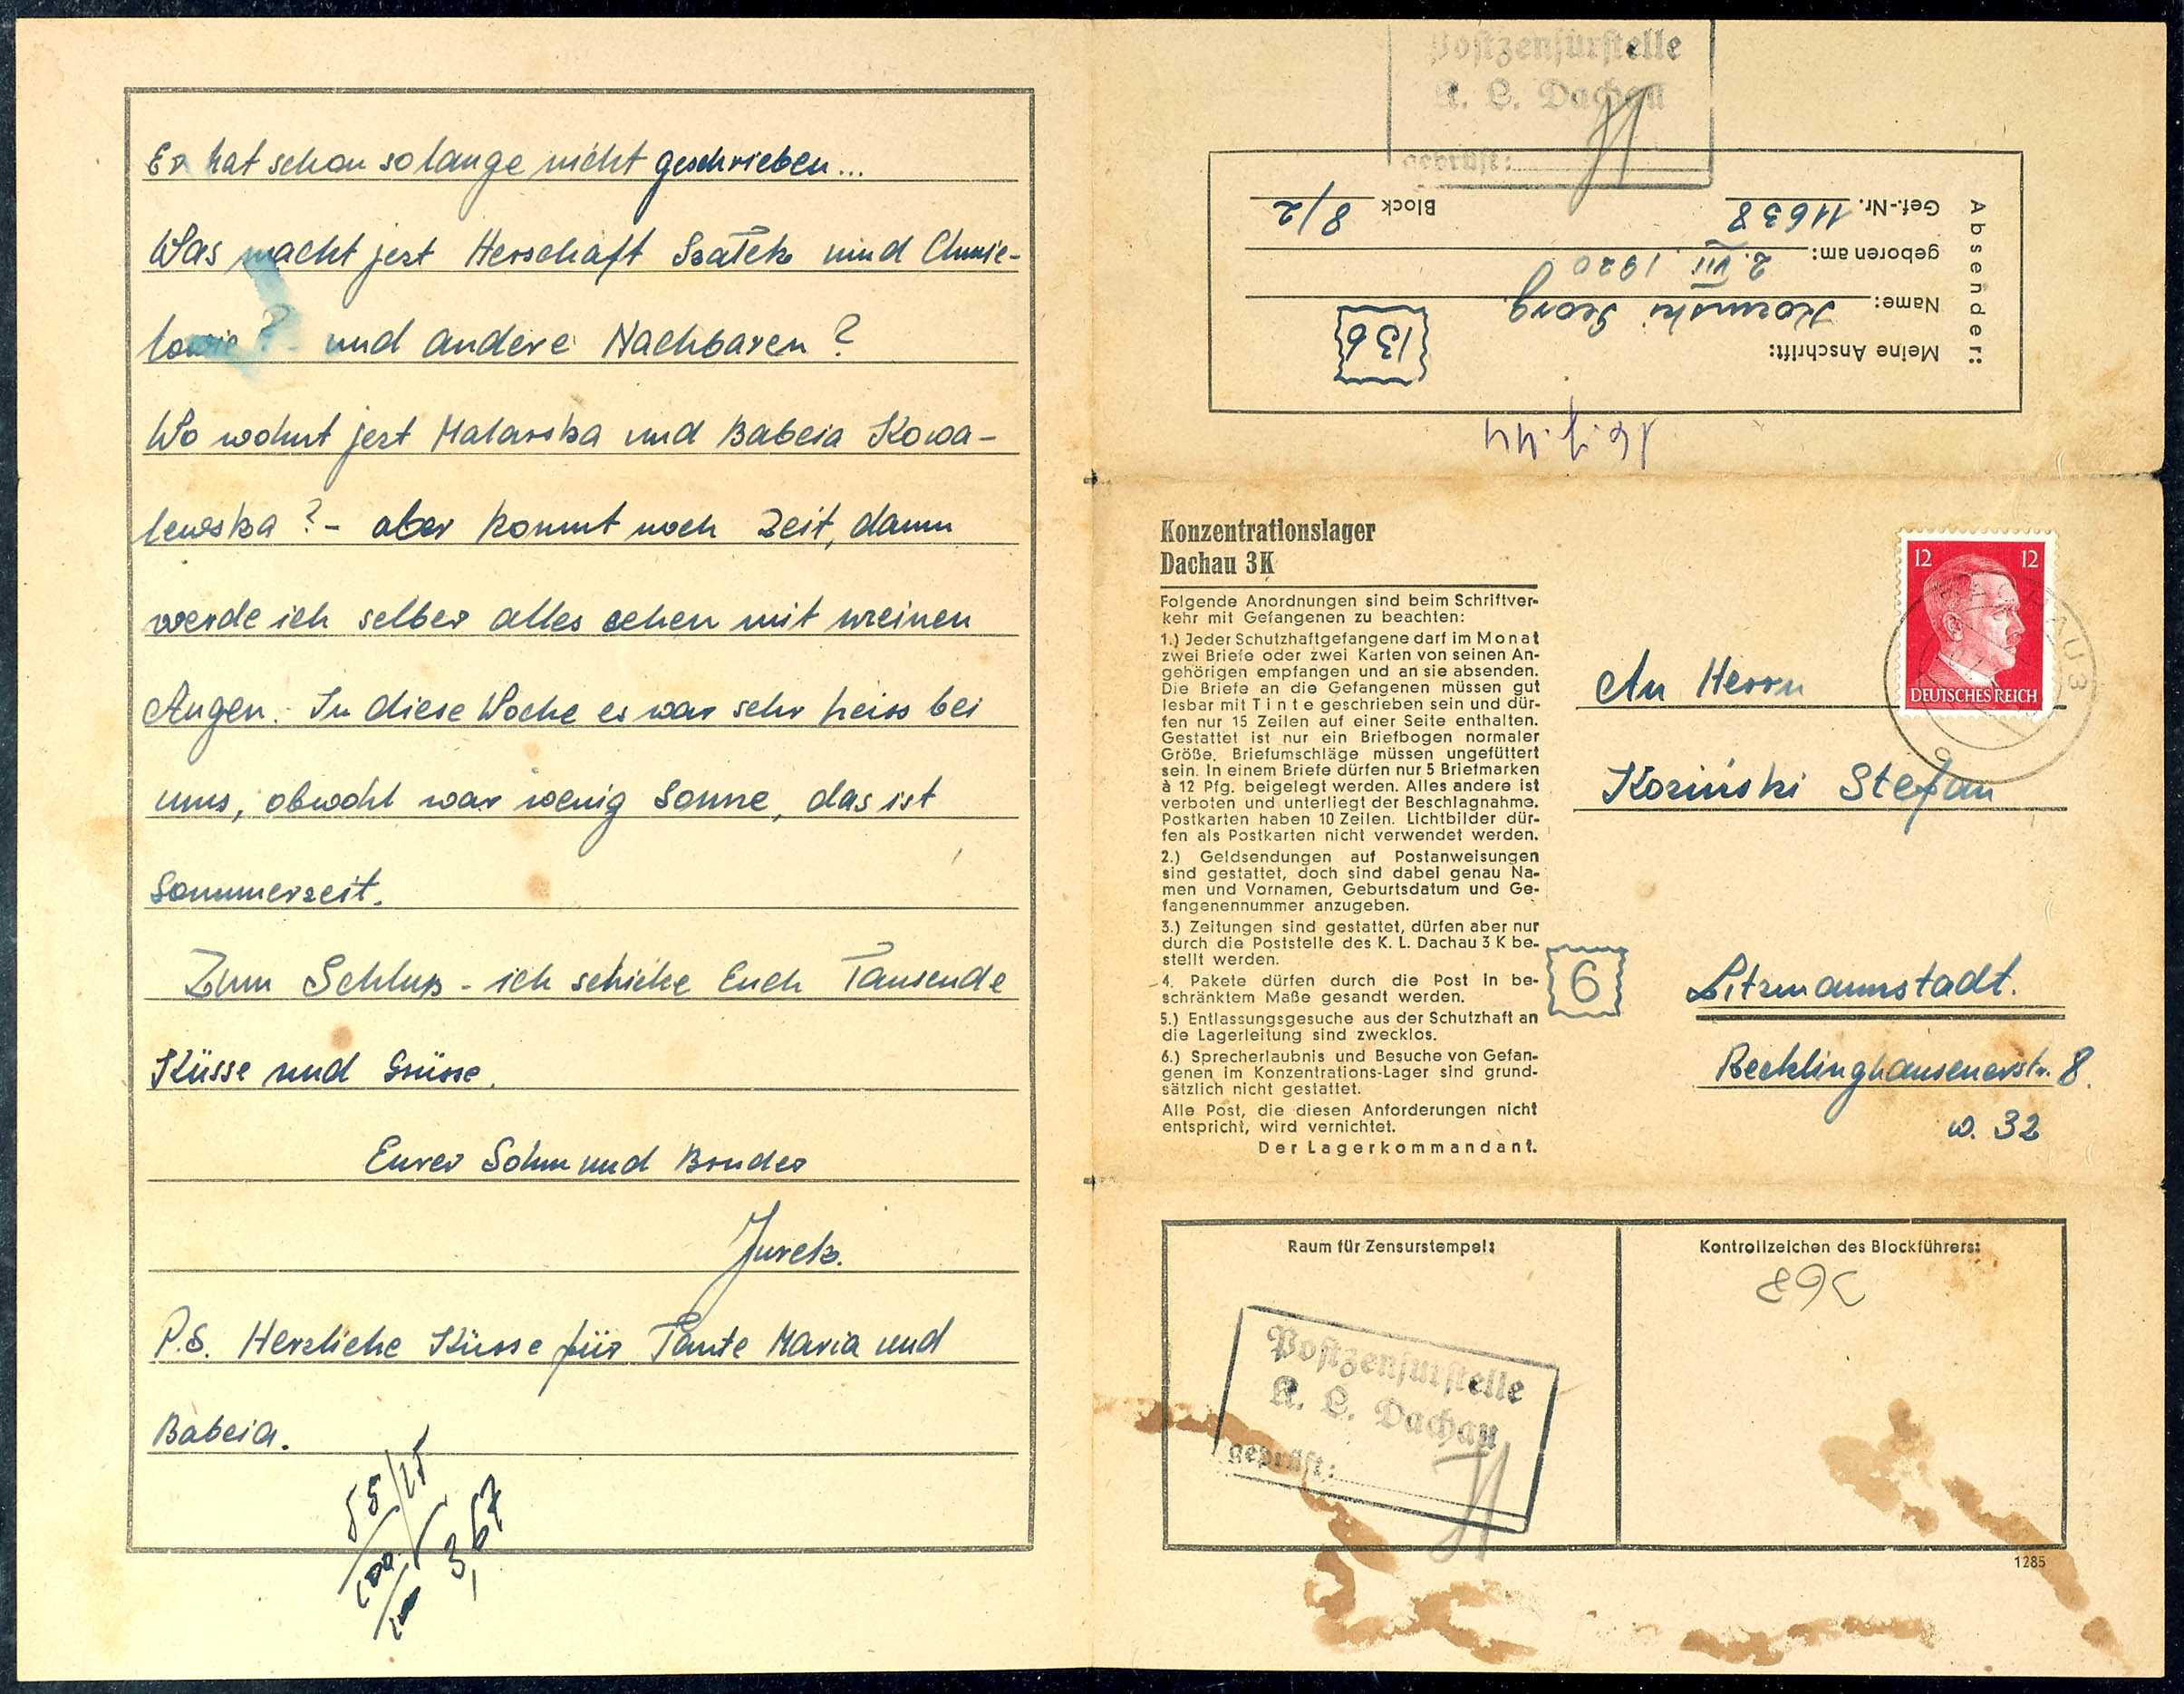 Er hat schon so lange nicht geschrieben...
Was macht jezt Herschaft Szałek und Chmie-
lowie ? - und andere Nachbaren ?
Wo wohnt jezt Malarska und Babcia Kowa-
lewska ? - aber kommt noch Zeit, dann
werde ich selber alles sehen mit meinen
Augen. In diese Woche es war sehr heiss bei
uns, obwohl war wenig Sonne, das ist
Sommerzeit.
Zum Schluß - ich schicke Euch Tausende
Küsse und Grüsse.
Eurer Sohn und Bruder
Jurek.
P.S. Herzliche Küsse für Tante Maria und
Babcia.
3,67
Postzensurstelle
K. L. Dachau
geprüft:
Absender:
Meine Anschrift:
136
Name: Kozinski Georg
geboren am: 2. VII. 1920
Gef.-Nr. 11638 Block 8/2
16.7.44
Konzentrationslager
Dachau 3K
Folgende Anordnungen sind beim Schriftver-
kehr mit Gefangenen zu beachten:
1.) Jeder Schutzhaftgefangene darf im Monat
zwei Briefe oder zwei Karten von seinen An-
gehörigen empfangen und an sie absenden.
Die Briefe an die Gefangenen müssen gut
lesbar mit Tinte geschrieben sein und dür-
fen nur 15 Zeilen auf einer Seite enthalten.
Gestattet ist nur ein Briefbogen normaler
Größe. Briefumschläge müssen ungefüttert
sein. In einem Briefe dürfen nur 5 Briefmarken
à 12 Pfg. beigelegt werden. Alles andere ist
verboten und unterliegt der Beschlagnahme.
Postkarten haben 10 Zeilen. Lichtbilder dür-
fen als Postkarten nicht verwendet werden.
2.) Geldsendungen auf Postanweisungen
sind gestattet, doch sind dabei genau Na-
men und Vornamen, Geburtsdatum und Ge-
fangenennummer anzugeben.
3.) Zeitungen sind gestattet, dürfen aber nur
durch die Poststelle des K. L. Dachau 3 K be-
stellt werden.
4. Pakete dürfen durch die Post in be-
schränktem Maße gesandt werden.
5.) Entlassungsgesuche aus der Schutzhaft an
die Lagerleitung sind zwecklos.
6.) Sprecherlaubnis und Besuche von Gefan-
genen im Konzentrations-Lager sind grund-
sätzlich nicht gestattet.
Alle Post, die diesen Anforderungen nicht
entspricht, wird vernichtet.
Der Lagerkommandant.
12 12
DEUTSCHES REICH
An Herrn
Koziński Stefan
6
Litzmannstadt.
Recklinghausenerstr. 8.
w. 32
Raum für Zensurstempel:
Postzensurstelle
K. L. Dachau
geprüft:
Kontrollzeichen des Blockführers:
1285